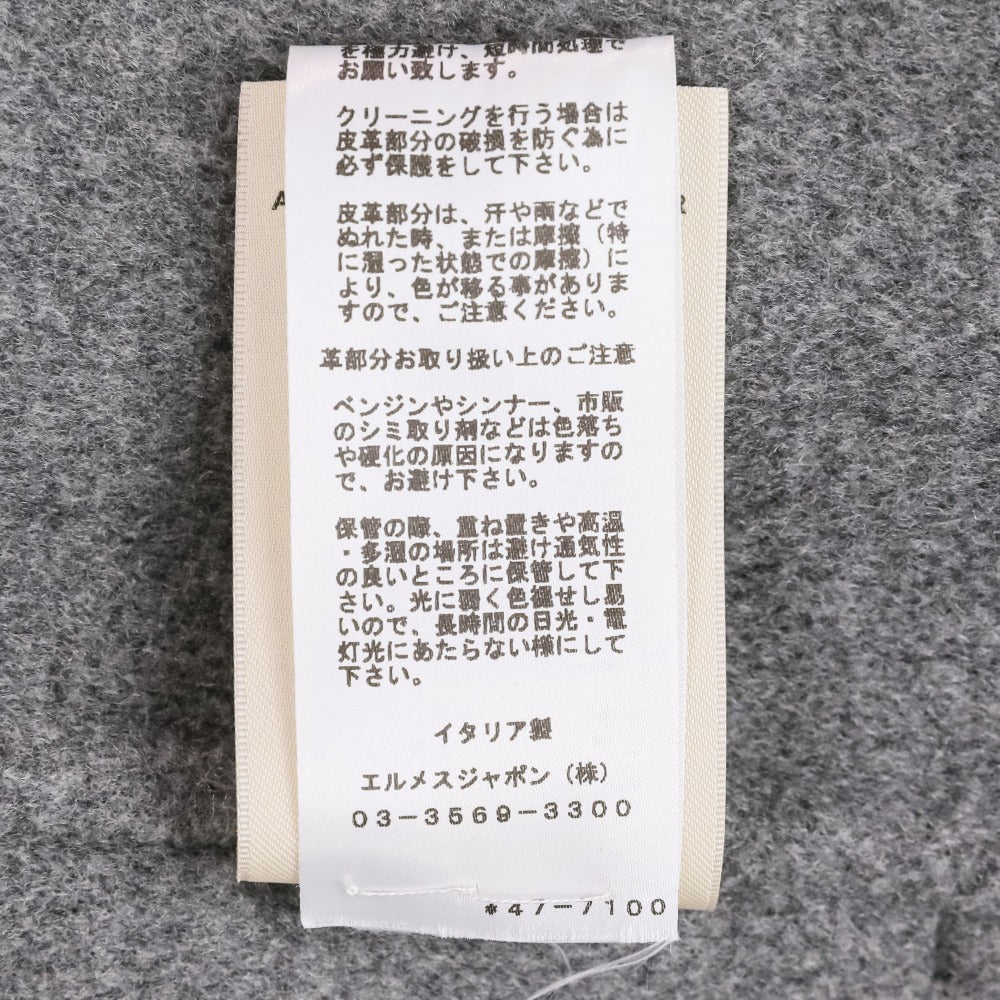 を極力避け、短時間処理で
お願い致します。
クリーニングを行う場合は
皮革部分の破損を防ぐ為に
必ず保護をして下さい。
皮革部分は、汗や雨などで
ぬれた時、または摩擦（特
に湿った状態での摩擦）に
より、色が移る事がありま
すので、ご注意ください。
革部分お取り扱い上のご注意
ベンジンやシンナー、市販
のシミ取り剤などは色落ち
や硬化の原因になりますの
で、お避け下さい。
保管の際、重ね置きや高温
・多湿の場所は避け通気性
の良いところに保管して下
さい。光に弱く色褪せし易
いので、長時間の日光・電
灯光にあたらない様にして
下さい。
イタリア製
エルメスジャポン（株）
03-3569-3300
*47-7100